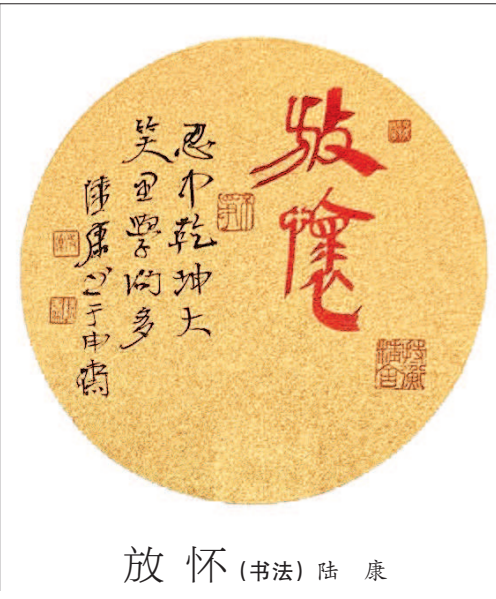 放懷
忍中乾坤大
笑里學问多
陸康书于申
放 怀 (书法) 陆 康